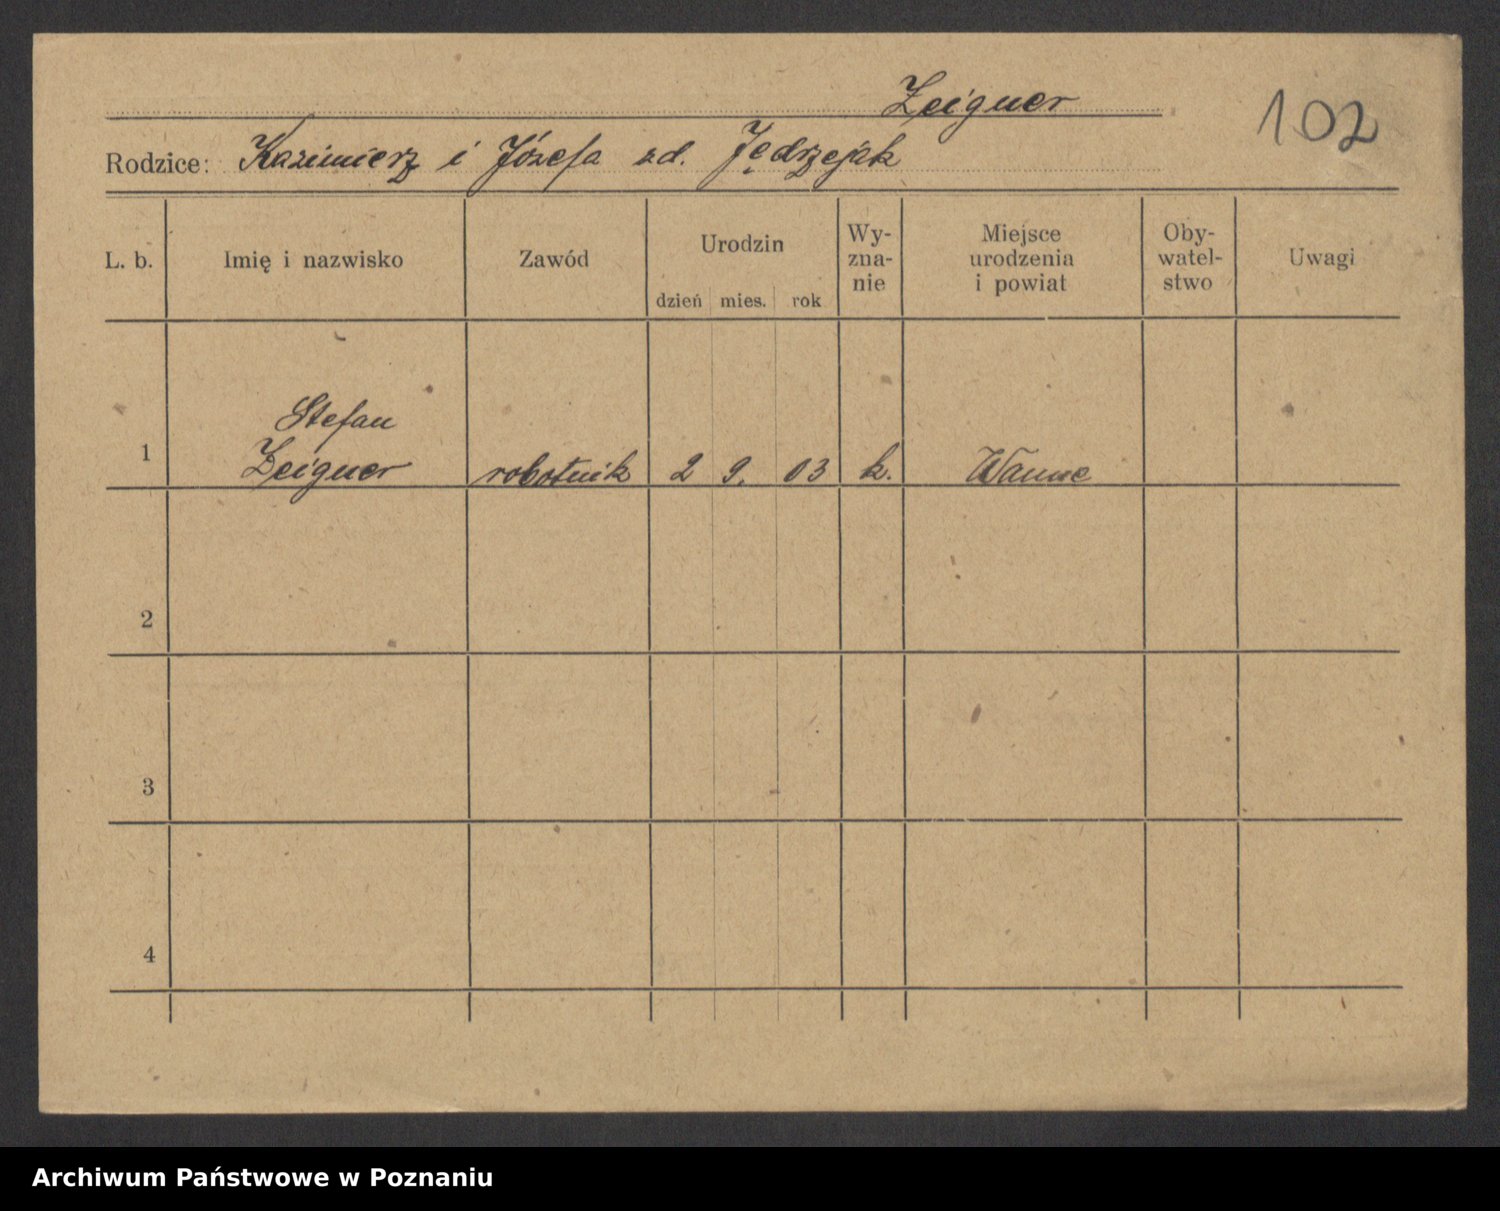 Zeigner
102
Rodzice: Kazimierz i Józefa zd. Jędrzejak
L. b.
Imię i nazwisko
Zawód
Urodzin
dzień mies. rok
Wy-
zna-
nie
Miejsce
urodzenia
i powiat
Oby-
watel-
stwo
Uwagi
1
Stefan
Zeigner
robotnik
2 9. 03
k.
Wanne
2
3
4
Archiwum Państwowe w Poznaniu